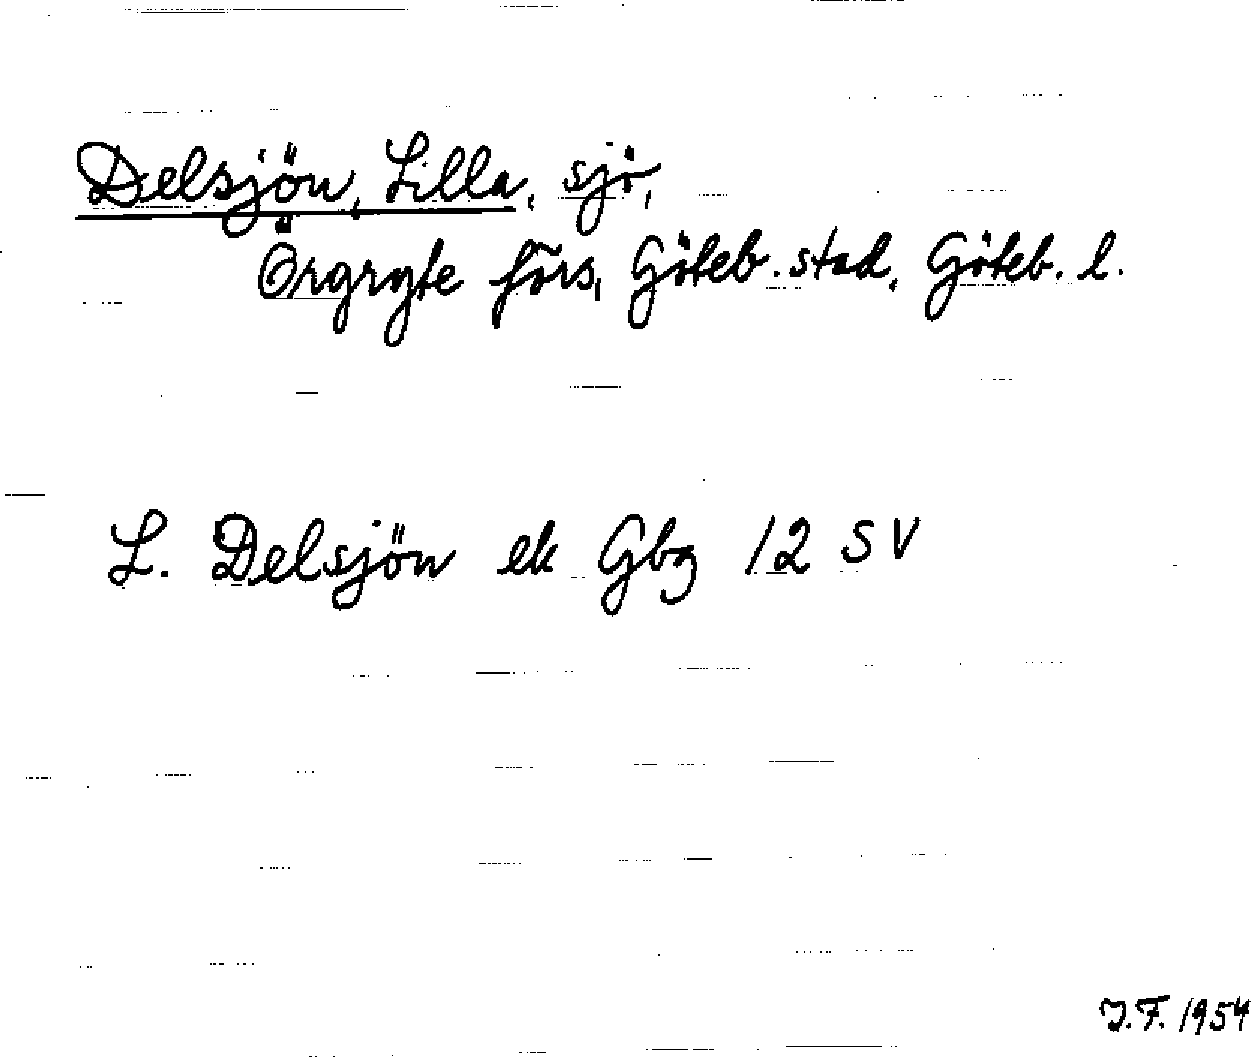 Delsjön, Lilla, sjö,
Örgryte förs, Göteb. stad, Göteb. l.
L. Delsjön ek Gbg 12 SV
J.F. 1954